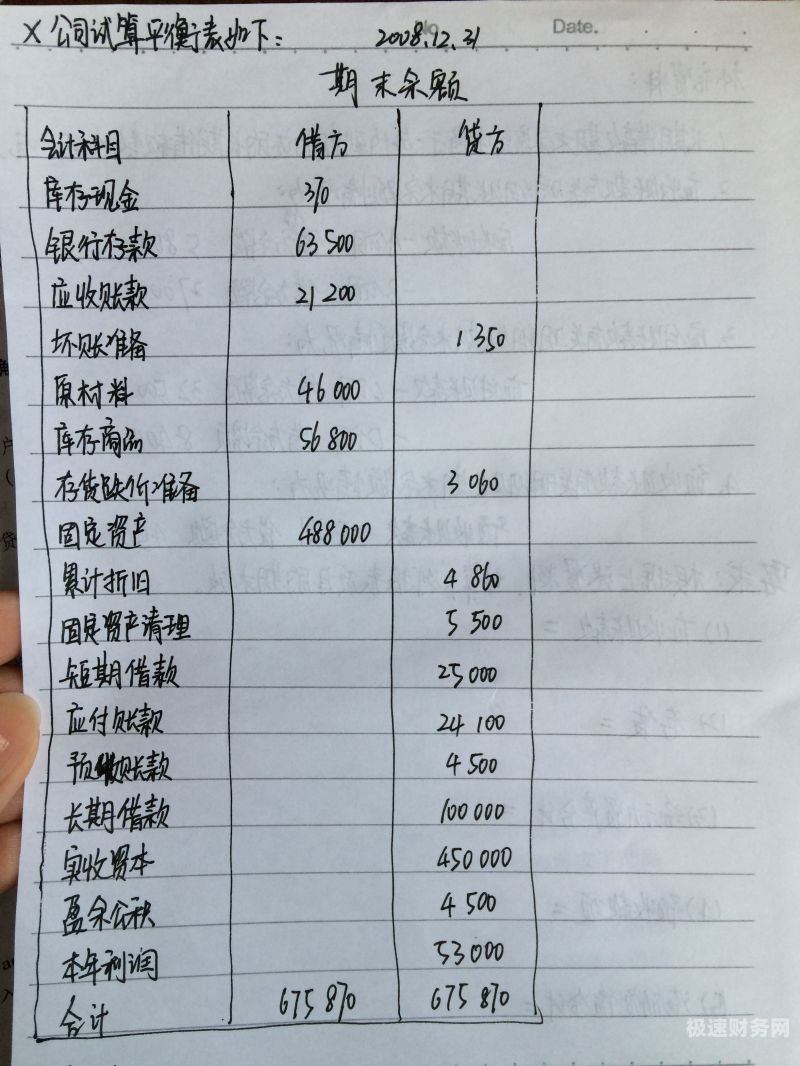 No.
Date.
X公司试算平衡表如下： 2008.12.31
期末余额
会计科目 借方 贷方
库存现金 370
银行存款 63 500
应收账款 21 200
坏账准备 1 350
原材料 46 000
库存商品 56 800
存货跌价准备 3 060
固定资产 488 000
累计折旧 4 860
固定资产清理 5 500
短期借款 25 000
应付账款 24 100
预收账款 4 500
长期借款 100 000
实收资本 450 000
盈余公积 4 500
本年利润 53 000
合计 675 870 675 870
极速财务网